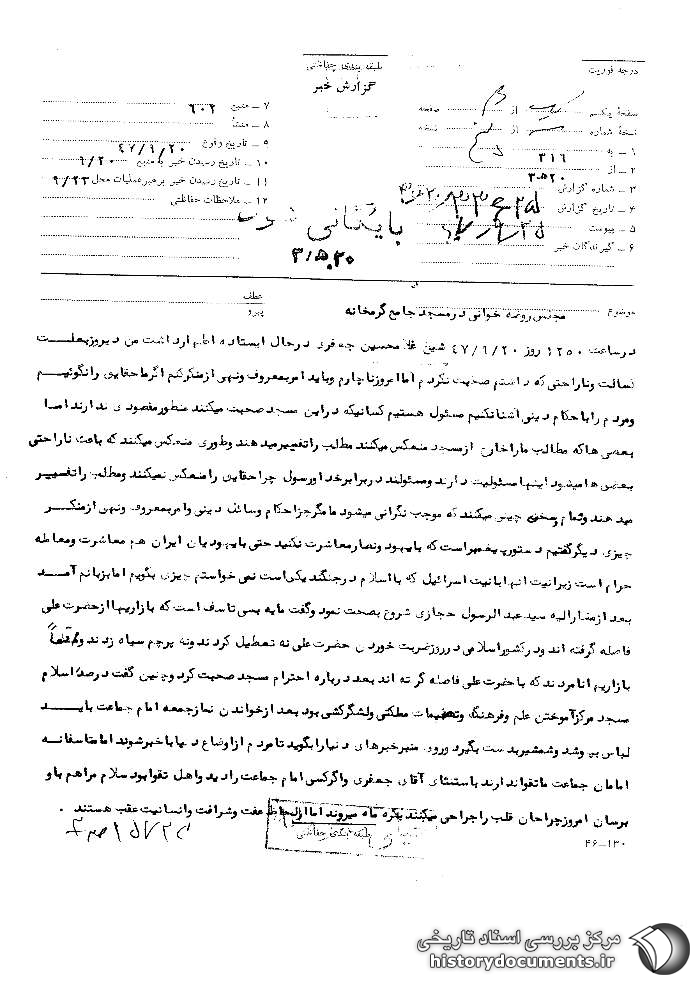 درجه فوریت
طبقه بندی حفاظتی
گزارش خبر
صفحه یکم از صفحه
نسخه شماره از نسخه
۱ - به ۳۱۶
۲ - از ۳۰۵۲۰
۳ - شماره گزارش
۴ - تاریخ گزارش
۵ - پیوست
۶ - گیرندگان خبر
۷ - منبع ۶۰۲
۸ - منشأ
۹ - تاریخ وقوع ۴۷/۹/۲۰
۱۰ - تاریخ رسیدن خبر به منبع ۹/۲۰
۱۱ - تاریخ رسیدن خبر برهبر عملیات محل ۹/۲۳
۱۲ - ملاحظات حفاظتی
بایگانی شود
۳/۵۰۲۰
موضوع مجلس روضه خوانی در مسجد جامع گرمخانه
عطف
پیرو
در ساعت ۱۲۵۰ روز ۴۷/۹/۲۰ شیخ غلامحسین جعفری در حال ایستاده اظهار داشت من دیروز بعلت
کسالت وناراحتی که داشتم صحبت نکردم اما امروز ناچارم وباید امر بمعروف ونهی از منکر کنم اگر ما حقایق را نگوئیم
ومردم را با حکام دینی آشنا نکنیم مسئول هستیم کسانیکه در این مسجد صحبت میکنند منظور مقصودی ندارند اما
بعضی ها که مطالب ما را خارج از مسجد منعکس میکنند مطلب را تغییر میدهند وطوری منعکس میکنند که باعث ناراحتی
بعضی ها میشود اینها مسئولیت دارند ومسئولند در برابر خدا ورسول چرا حقایق را منعکس نمیکنند ومطلب را تغییر
میدهند وتمام سخن چینی میکنند که موجب نگرانی میشود ما مگر جز احکام ومسائل دینی وامر بمعروف ونهی از منکر
چیزی دیگر گفتیم دستور پیغمبر است که با یهود ونصارا معاشرت نکنید حتی با یهودیان ایران هم معاشرت ومعامله
حرام است زیرا نیت آنها با نیت اسرائیل که با اسلام در جنگند یکی است نمی خواستم چیزی بگویم اما بزبانم آمد
بعد از مشارالیه سید عبدالرسول حجازی شروع بصحبت نمود وگفت مایه بسی تاسف است که بازاریها از حضرت علی
فاصله گرفته اند ودر کشور اسلامی در روز ضربت خوردن حضرت علی نه تعطیل کردند ونه پرچم سیاه زدند
بازاریها نامردند که با حضرت علی فاصله گرفته اند بعد درباره احترام مسجد صحبت کرد وچنین گفت در صدر اسلام
مسجد مرکز آموختن علم وفرهنگ وتصمیمات مملکتی ولشگرکشی بود بعد از خواندن نماز جمعه امام جماعت باید
لباس بپوشد وشمشیر بدست بگیرد ورود منبر خبرهای دنیا را بگوید تا مردم از اوضاع دنیا با خبر شوند اما متاسفانه
امامان جماعت ما تقوا ندارند باستثنای آقای جعفری واگر کسی امام جماعت را دید واهل تقوا بود سلام مرا هم باو
برسان امروز جراحان قلب را جراحی میکنند بکره ماه میروند اما از لحاظ عفت وشرافت وانسانیت عقب هستند .
طبقه بندی حفاظتی
۴۶-۱۳۰
مرکز بررسی اسناد تاریخی
historydocuments.ir